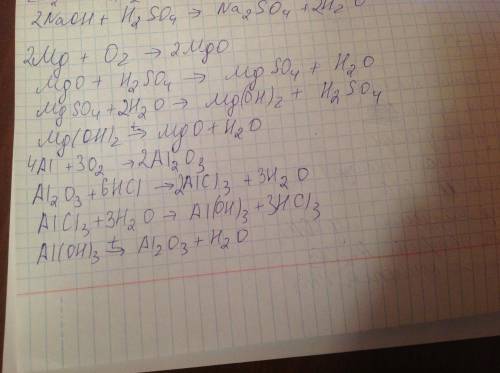 2NaOH + H₂SO₄ → Na₂SO₄ + 2H₂O
2Mg + O₂ → 2MgO
MgO + H₂SO₄ → MgSO₄ + H₂O
MgSO₄ + 2H₂O → Mg(OH)₂ + H₂SO₄
Mg(OH)₂ t→ MgO + H₂O
4Al + 3O₂ → 2Al₂O₃
Al₂O₃ + 6HCl → 2AlCl₃ + 3H₂O
AlCl₃ + 3H₂O → Al(OH)₃ + 3HCl₃
Al(OH)₃ t→ Al₂O₃ + H₂O